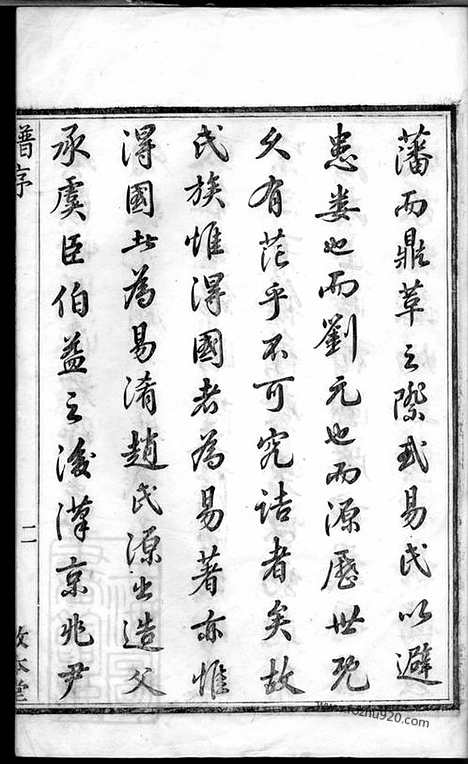 藩而鼎革之際或易氏以避
患婁也而劉元也而源歷世既
久有茫乎不可究詰者矣故
氏族惟得國者為易著亦惟
得國者為易淆趙氏源出造父
承虞臣伯益之後漢京兆尹
譜序
二
敦本堂
www.fozhu920.com